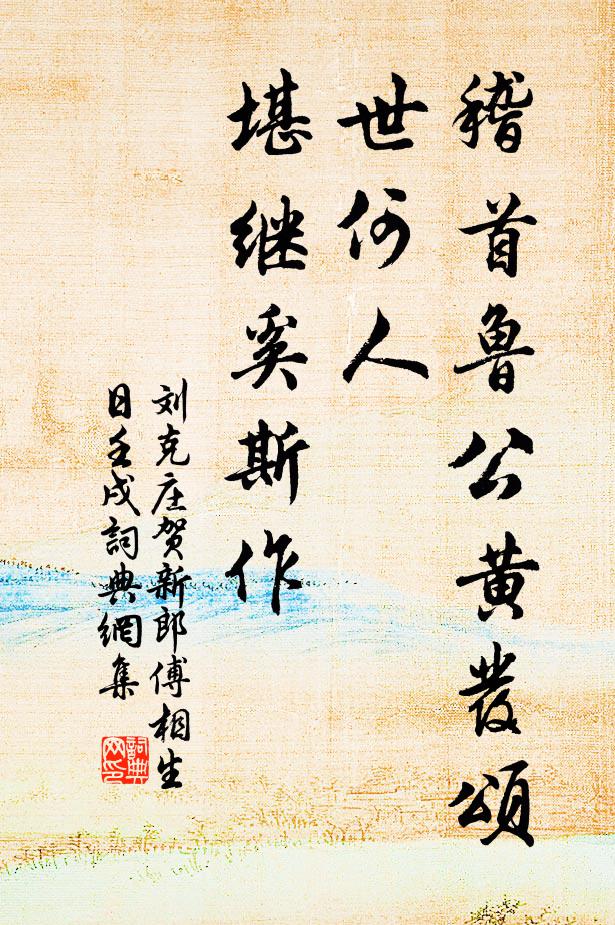 稽首魯公黄发頌
世何人
堪继奚斯作
刘克庄贺新郎傅相生
日壬戌詞典網集
詞典
网印